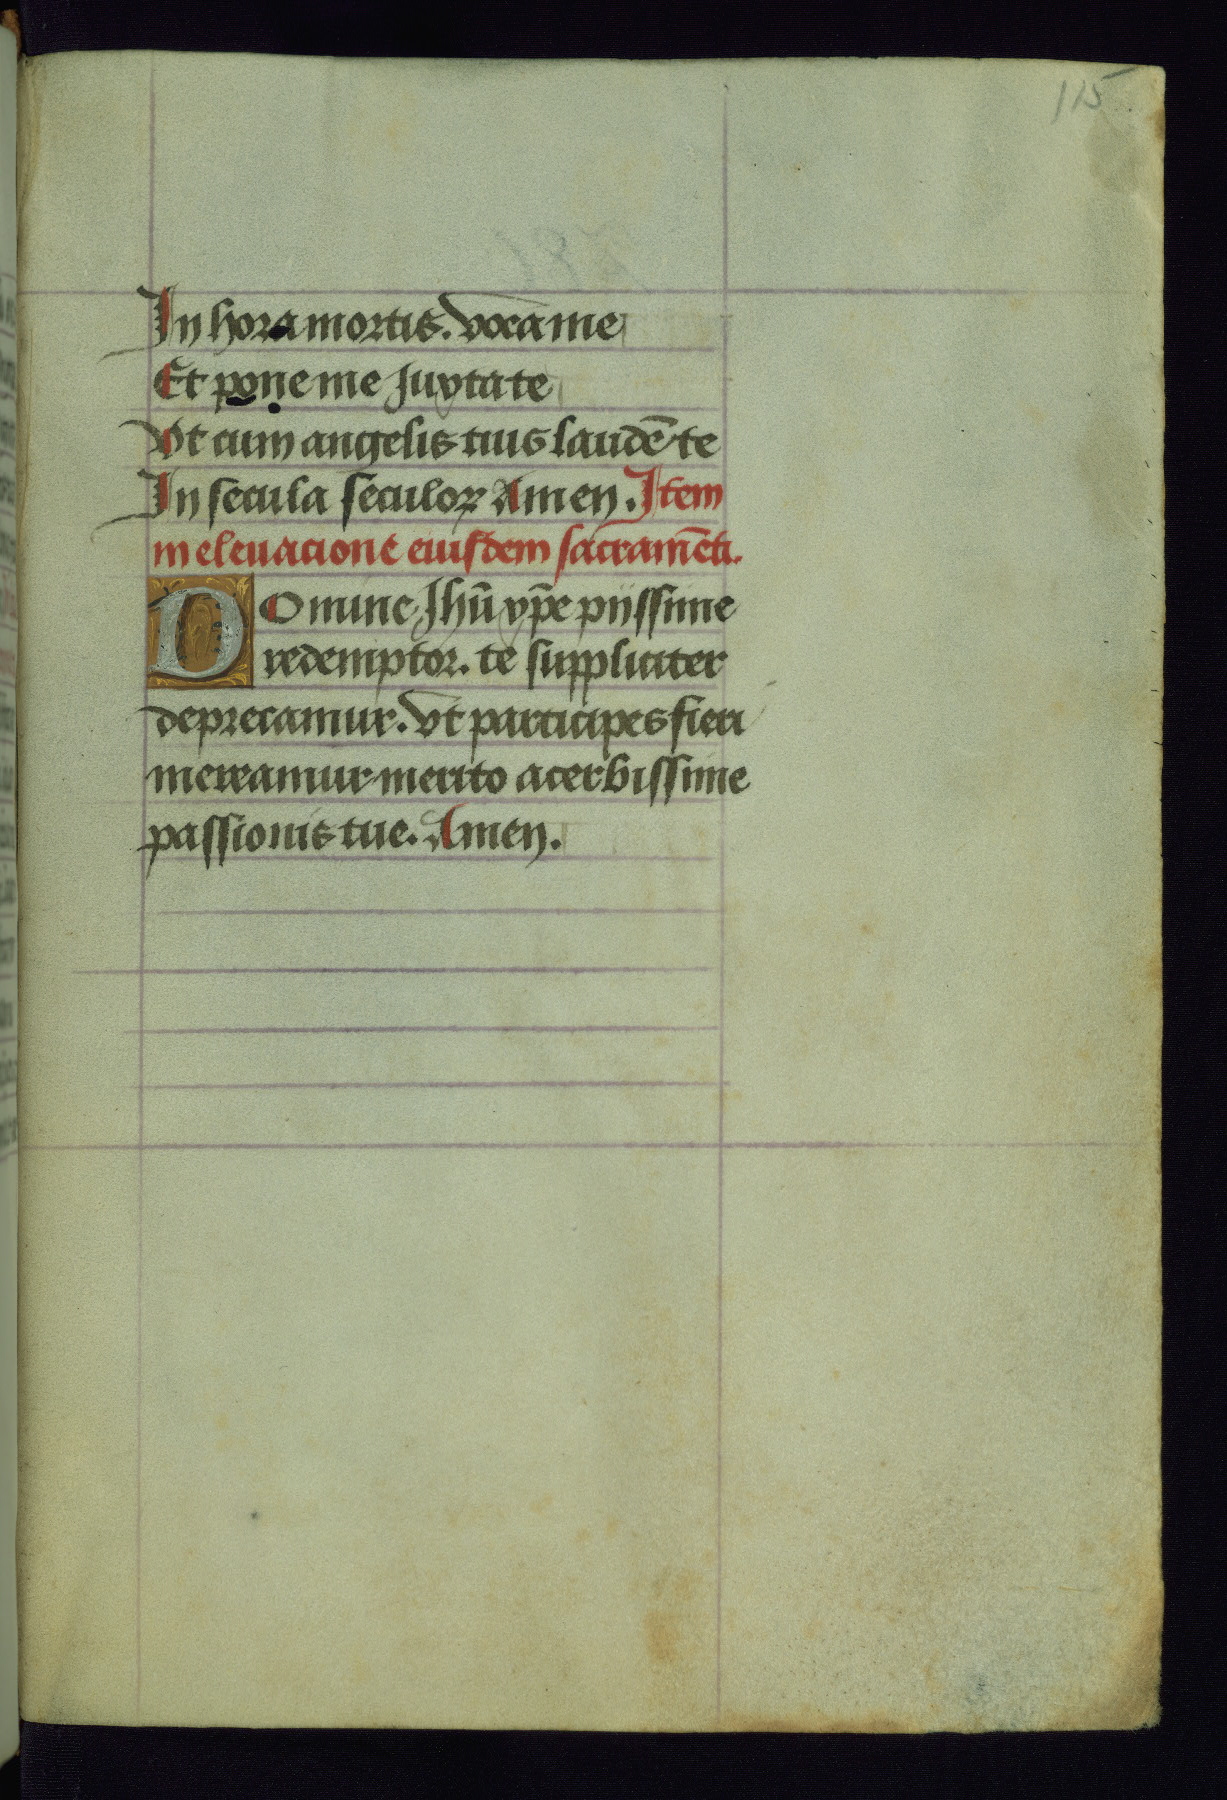 115
In hora mortis. voca me
Et pone me Juxta te
Vt cum angelis tuis laudē te
In secula seculoꝝ Amen. Item
in eleuacione eiusdem sacramēti.
Domine Jhū xp̄e piissime
redemptor. te suppliciter
deprecamur. vt participes fieri
mereamur merito acerbissime
passionis tue. Amen.